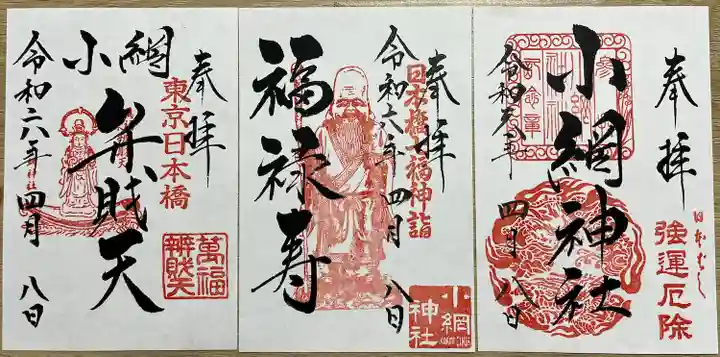 奉拝
東京日本橋
小網
弁財天
萬福
辨財天
令和六年四月八日
奉拝
日本橋七福神詣
令和六年四月八日
福禄寿
小網
神社
奉拝
日本橋
強運厄除
小網神社
令和六年四月八日